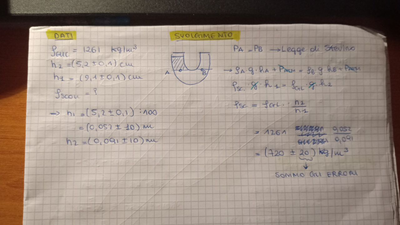 DATI
ρ = 1261 kg/m³
h₂ = (5,2 ± 0,1) cm
h₁ = (9,1 ± 0,1) cm
= ?
⇒ h₁ = (5,2 ± 0,1) · 100
= (0,052 ± 10) m
h₂ = (0,091 ± 10) m
SVOLGIMENTO
A B
PA = PB → Legge di Stevino
→ ρA g · hA + Patm = g hB + Patm
g h = g h₂
ρ = ρ · h₁/h₂
= 1261 0,052/0,091
= (720 ± 20) kg/m³
SOMMO GLI ERRORI